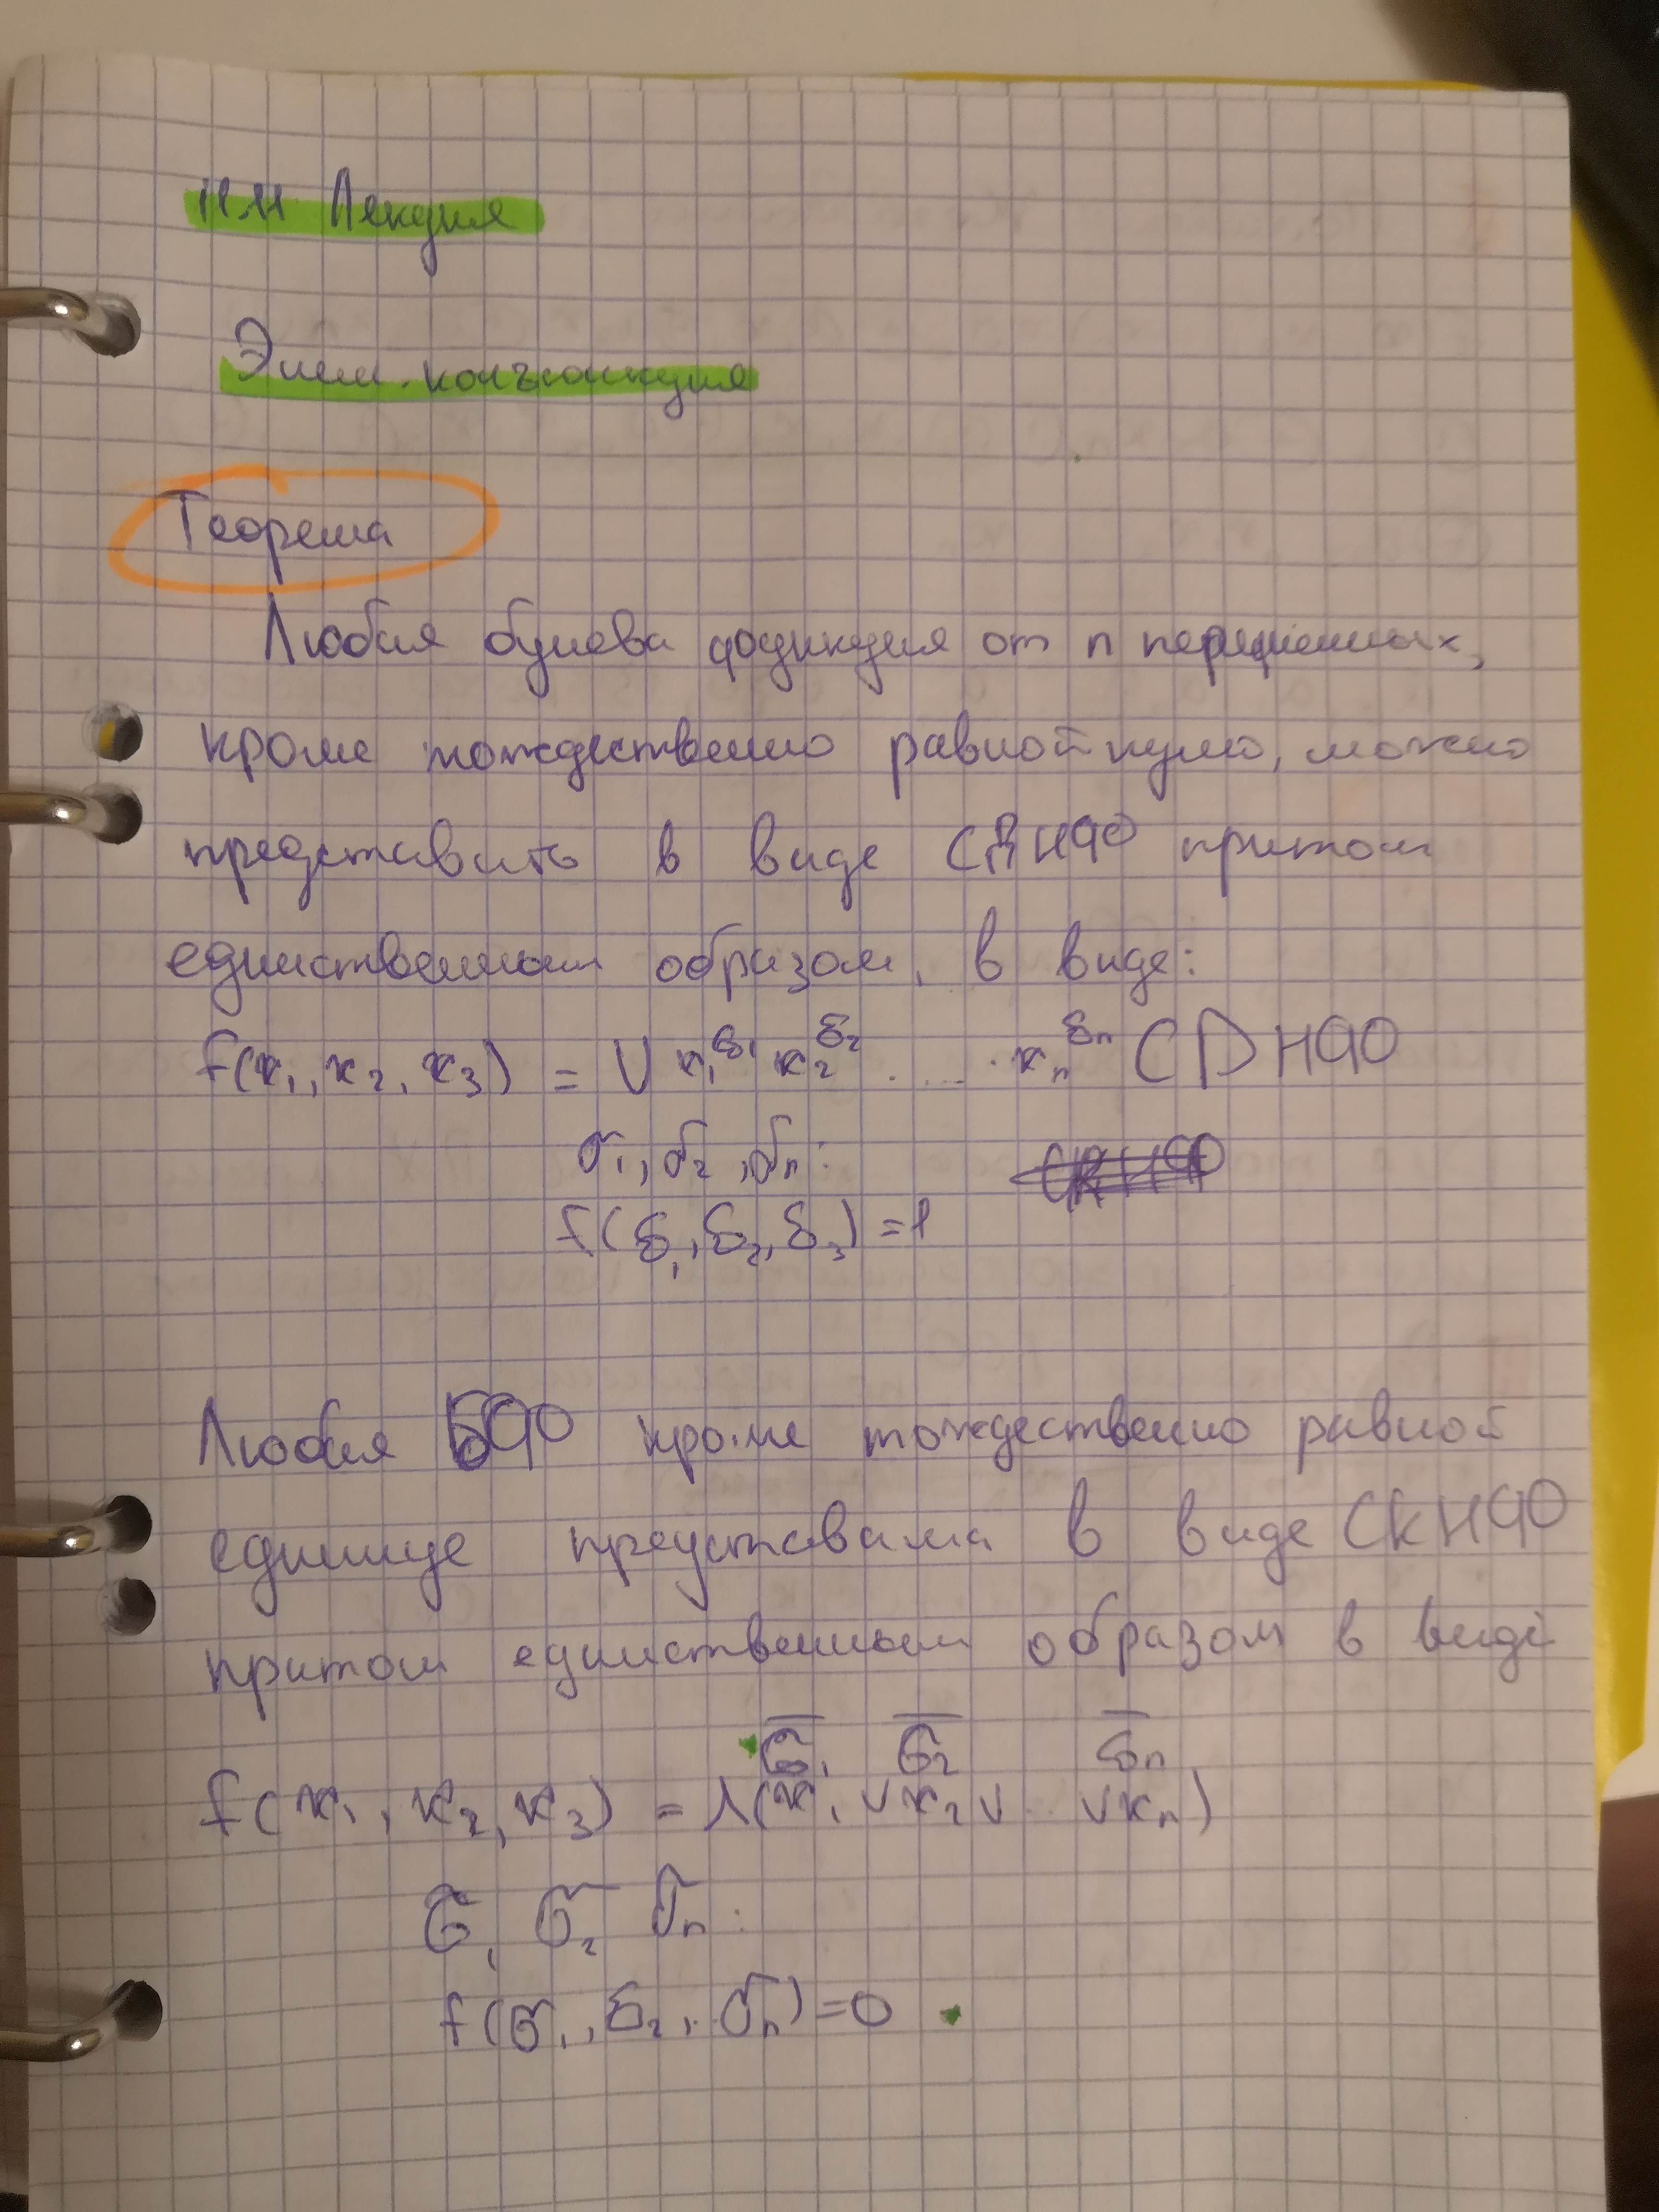 11.11 Лекция
Элем. конъюнкция
Теорема
Любая булева функция от n переменных,
кроме тождественно равной нулю, можно
представить в виде СДНФ притом
единственным образом, в виде:
f(x₁, x₂, x₃) = ∨ x₁^σ₁ x₂^σ₂ . . . . · xₙ^σₙ СДНФ
σ₁, σ₂, σₙ:
f(σ₁, σ₂, σ₃) = 1
Любая БФ кроме тождественно равной
единице представима в виде СКНФ
притом единственным образом в виде
f(x₁, x₂, x₃) = ∧(x₁^σ̅₁ ∨ x₂^σ̅₂ ∨ .. ∨ xₙ^σ̅ₙ)
σ₁ σ₂ σₙ :
f(σ₁, σ₂, .. σₙ) = 0